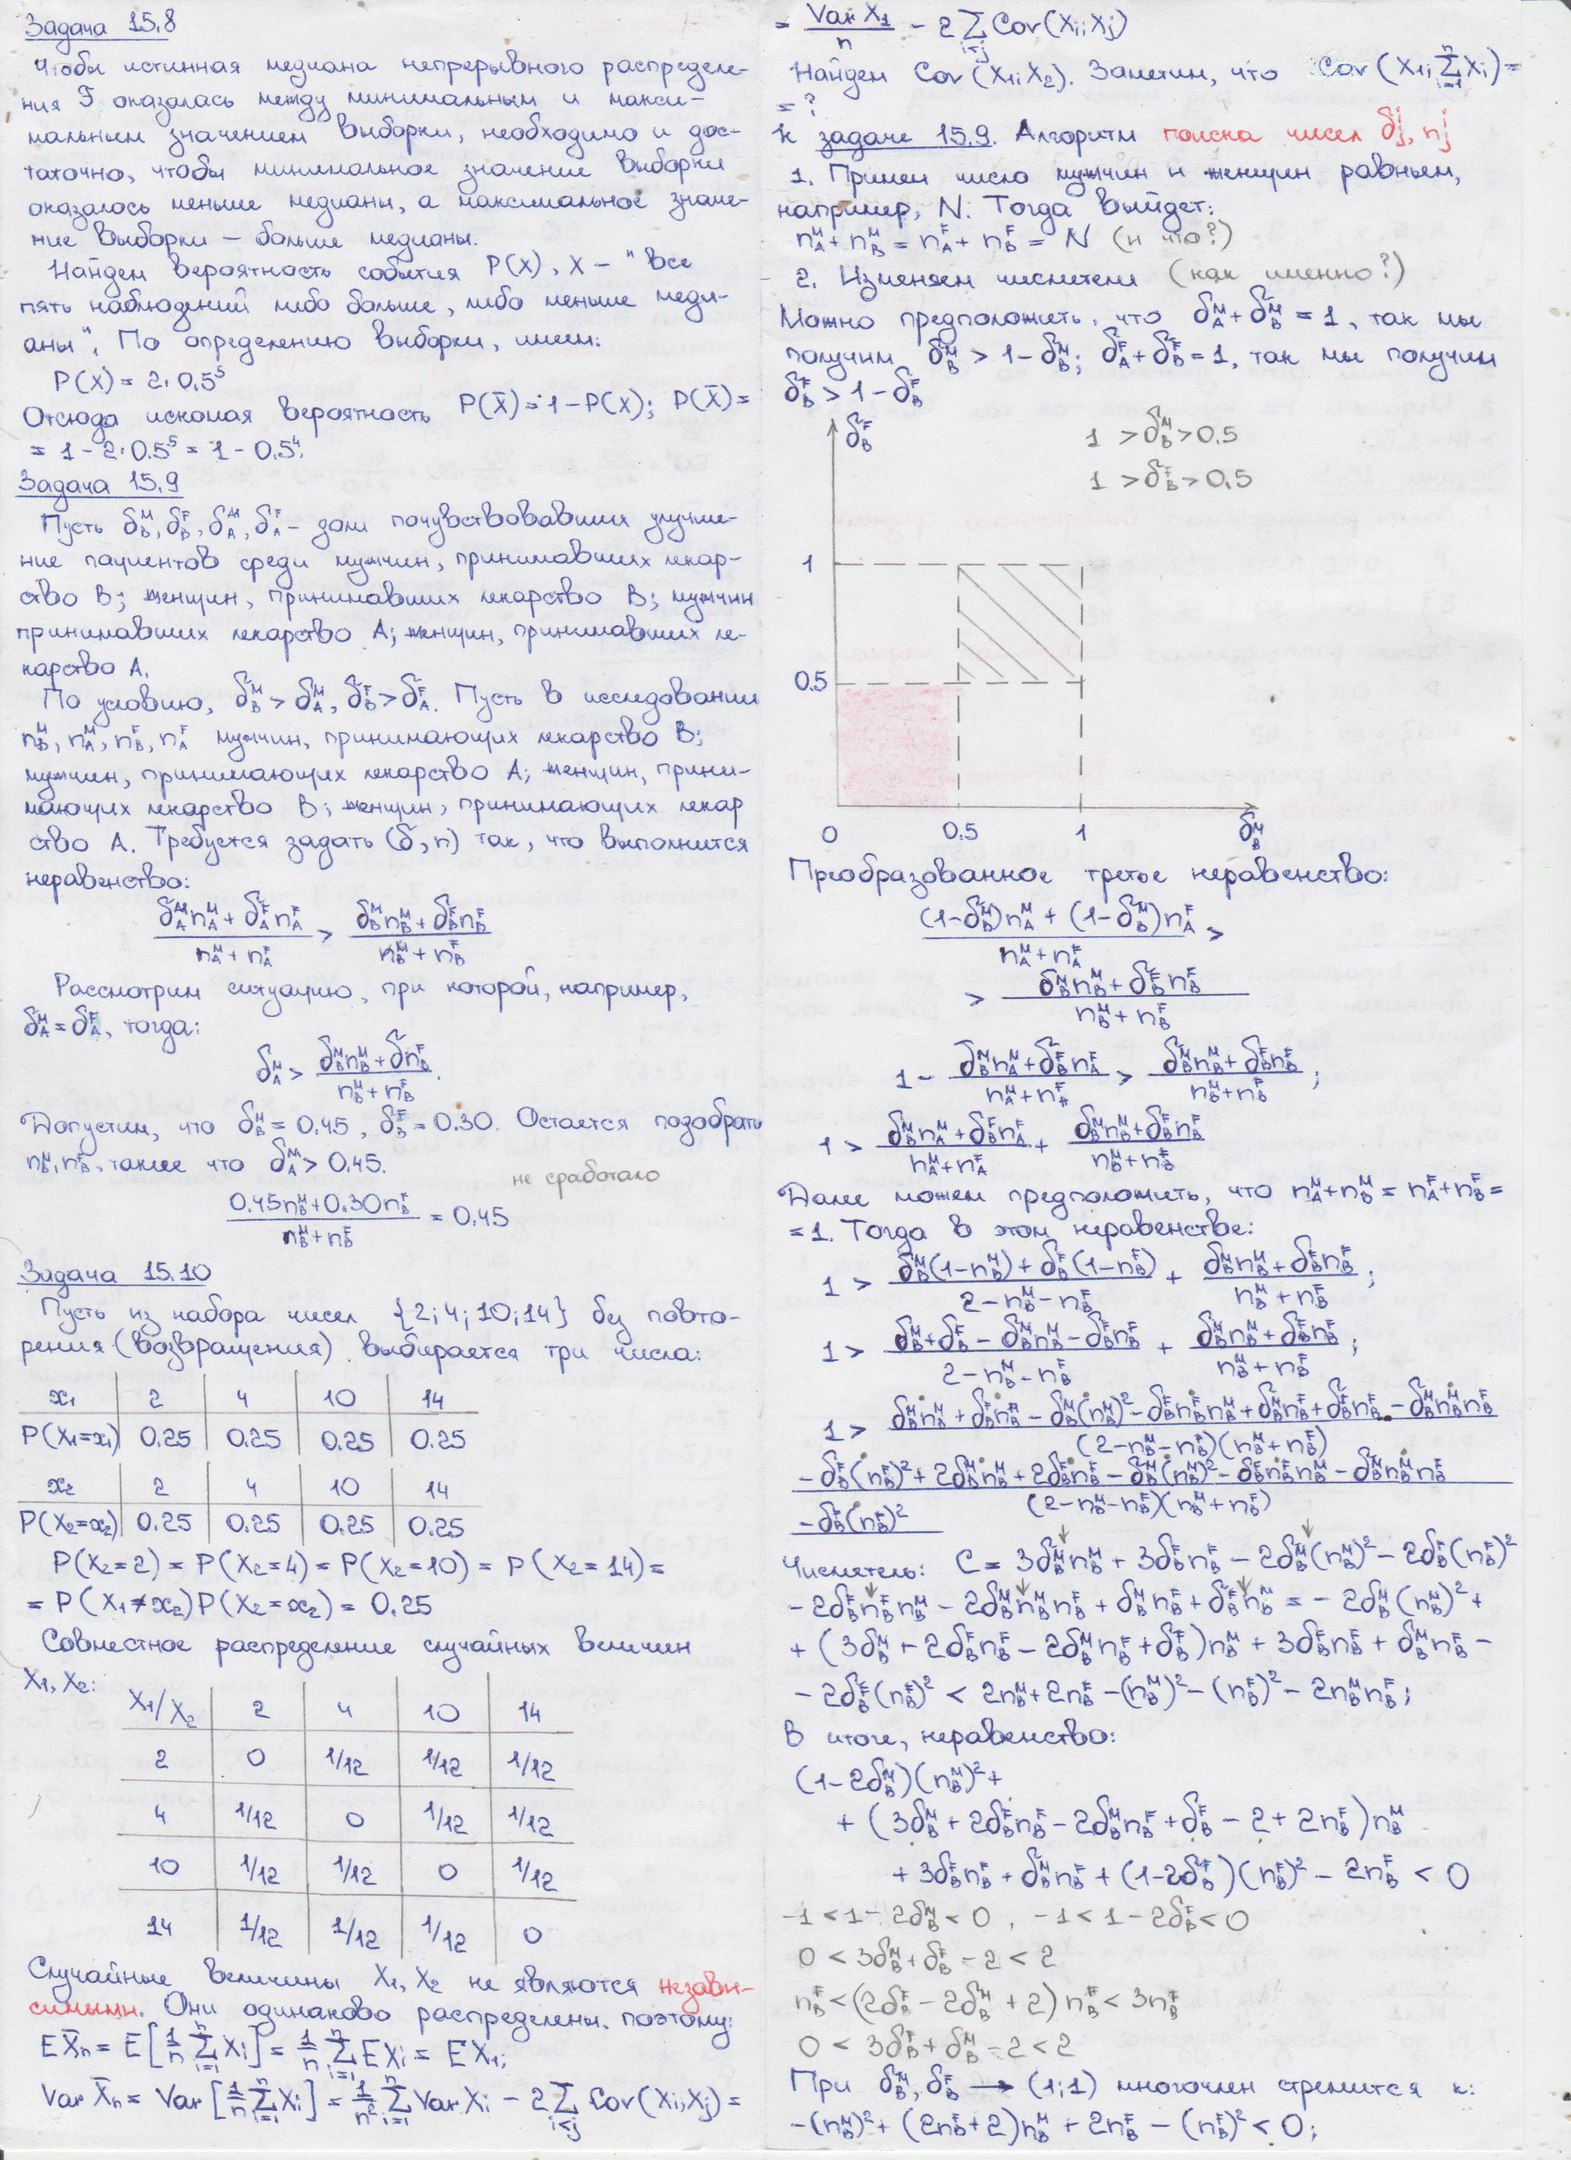 Задача 15.8
Чтобы истинная медиана непрерывного распределе-
ния F оказалась между минимальным и макси-
мальным значением выборки, необходимо и дос-
таточно, чтобы минимальное значение выборки
оказалось меньше медианы, а максимальное значе-
ние выборки – больше медианы.
Найдем вероятность события P(X), X – "все
пять наблюдений либо больше, либо меньше меди-
аны". По определению выборки, имеем:
P(X) = 2·0.5⁵
Отсюда искомая вероятность P(X̄) = 1 – P(X); P(X̄) =
= 1 – 2·0.5⁵ = 1 – 0.5⁴.
Задача 15.9
Пусть δ_B^M, δ_B^F, δ_A^M, δ_A^F – доли почувствовавших улучше-
ние пациентов среди мужчин, принимавших лекар-
ство B; женщин, принимавших лекарство B; мужчин
принимавших лекарство A; женщин, принимавших ле-
карство A.
По условию, δ_B^M > δ_A^M, δ_B^F > δ_A^F. Пусть в исследовании
n_B^M, n_A^M, n_B^F, n_A^F мужчин, принимающих лекарство B;
мужчин, принимающих лекарство A; женщин, прини-
мающих лекарство B; женщин, принимающих лекар
ство A. Требуется задать (δ, n) так, что выполнится
неравенство:
(δ_A^M n_A^M + δ_A^F n_A^F)/(n_A^M + n_A^F) > (δ_B^M n_B^M + δ_B^F n_B^F)/(n_B^M + n_B^F)
Рассмотрим ситуацию, при которой, например,
δ_A^M = δ_A^F, тогда:
δ_A^M > (δ_B^M n_B^M + δ n_B^F)/(n_B^M + n_B^F).
Допустим, что δ_B^M = 0.45, δ_B^F = 0.30. Остается подобрать
n_B^M, n_B^F, такие что δ_A^M > 0.45.
не сработало
(0.45n_B^M + 0.30n_B^F)/(n_B^M + n_B^F) = 0.45
Задача 15.10
Пусть из набора чисел {2; 4; 10; 14} без повто-
рения (возвращения) выбирается три числа:
x₁ 2 4 10 14
P(X₁=x₁) 0.25 0.25 0.25 0.25
x₂ 2 4 10 14
P(X₂=x₂) 0.25 0.25 0.25 0.25
P(X₂=2) = P(X₂=4) = P(X₂=10) = P(X₂=14) =
= P(X₁≠x₂)P(X₂=x₂) = 0.25
Совместное распределение случайных величин
X₁, X₂:
X₁/X₂ 2 4 10 14
2 0 1/12 1/12 1/12
4 1/12 0 1/12 1/12
10 1/12 1/12 0 1/12
14 1/12 1/12 1/12 0
Случайные величины X₁, X₂ не являются незави-
симыми. Они одинаково распределены, поэтому:
E X̄n = E[1/n Σ_{i=1}^n Xi] = 1/n Σ_{i=1}^n E Xi = E X₁;
Var X̄n = Var[1/n Σ_{i=1}^n Xi] = 1/n² Σ_{i=1}^n Var Xi – 2 Σ_{i<j} Cov(Xi, Xj) =
= Var X₁/n – 2 Σ_{i<j} Cov(Xi, Xj)
Найдем Cov(X₁, X₂). Заметим, что Cov(X₁; Σ_{i=1}^n Xi) =
= ?
К задаче 15.9. Алгоритм поиска чисел δ_j^i, n_j^i
1. Примем число мужчин и женщин равным,
например, N. Тогда выйдет:
n_A^M + n_B^M = n_A^F + n_B^F = N (и что?)
2. Изменяем числители (как именно?)
Можно предположить, что δ_A^M + δ_B^M = 1, так мы
получим δ_B^M > 1 – δ_B^M; δ_A^F + δ_B^F = 1, так мы получим
δ_B^F > 1 – δ_B^F
δ_B^F
1 > δ_B^M > 0.5
1 > δ_B^F > 0.5
1
0.5
0 0.5 1 δ_B^M
Преобразованное третье неравенство:
((1–δ_B^M)n_A^M + (1–δ_B^M)n_A^F)/(n_A^M + n_A^F) >
> (δ_B^M n_B^M + δ_B^F n_B^F)/(n_B^M + n_B^F)
1 – (δ_B^M n_A^M + δ_B^F n_A^F)/(n_A^M + n_A^F) > (δ_B^M n_B^M + δ_B^F n_B^F)/(n_B^M + n_B^F);
1 > (δ_B^M n_A^M + δ_B^F n_A^F)/(n_A^M + n_A^F) + (δ_B^M n_B^M + δ_B^F n_B^F)/(n_B^M + n_B^F)
Далее можем предположить, что n_A^M + n_B^M = n_A^F + n_B^F =
= 1. Тогда в этом неравенстве:
1 > (δ_B^M(1–n_B^M) + δ_B^F(1–n_B^F))/(2–n_B^M–n_B^F) + (δ_B^M n_B^M + δ_B^F n_B^F)/(n_B^M + n_B^F);
1 > (δ_B^M + δ_B^F – δ_B^M n_B^M – δ_B^F n_B^F)/(2–n_B^M–n_B^F) + (δ_B^M n_B^M + δ_B^F n_B^F)/(n_B^M + n_B^F);
1 > (δ_B^M n_B^M + δ_B^F n_B^M – δ_B^M(n_B^M)² – δ_B^F n_B^F n_B^M + δ_B^M n_B^F + δ_B^F n_B^F – δ_B^M n_B^M n_B^F)/((2–n_B^M–n_B^F)(n_B^M + n_B^F))
(–δ_B^F(n_B^F)² + 2δ_B^M n_B^M + 2δ_B^F n_B^F – δ_B^M(n_B^M)² – δ_B^F n_B^F n_B^M – δ_B^M n_B^M n_B^F)/((2–n_B^M–n_B^F)(n_B^M + n_B^F))
–δ_B^F(n_B^F)²
Числитель: C = 3δ_B^M n_B^M + 3δ_B^F n_B^F – 2δ_B^M(n_B^M)² – 2δ_B^F(n_B^F)²
– 2δ_B^F n_B^F n_B^M – 2δ_B^M n_B^M n_B^F + δ_B^M n_B^F + δ_B^F n_B^M = – 2δ_B^M(n_B^M)² +
+ (3δ_B^M + 2δ_B^F n_B^F – 2δ_B^M n_B^F + δ_B^F)n_B^M + 3δ_B^F n_B^F + δ_B^M n_B^F –
– 2δ_B^F(n_B^F)² < 2n_B^M + 2n_B^F – (n_B^M)² – (n_B^F)² – 2n_B^M n_B^F;
В итоге, неравенство:
(1–2δ_B^M)(n_B^M)² +
+ (3δ_B^M + 2δ_B^F n_B^F – 2δ_B^M n_B^F + δ_B^F – 2 + 2n_B^F)n_B^M
+ 3δ_B^F n_B^F + δ_B^M n_B^F + (1–2δ_B^F)(n_B^F)² – 2n_B^F < 0
–1 < 1 – 2δ_B^M < 0, –1 < 1 – 2δ_B^F < 0
0 < 3δ_B^M + δ_B^F – 2 < 2
n_B^F < (2δ_B^F – 2δ_B^M + 2)n_B^F < 3n_B^F
0 < 3δ_B^F + δ_B^M – 2 < 2
При δ_B^M, δ_B^F → (1; 1) многочлен стремится к:
–(n_B^M)² + (2n_B^F + 2)n_B^M + 2n_B^F – (n_B^F)² < 0;